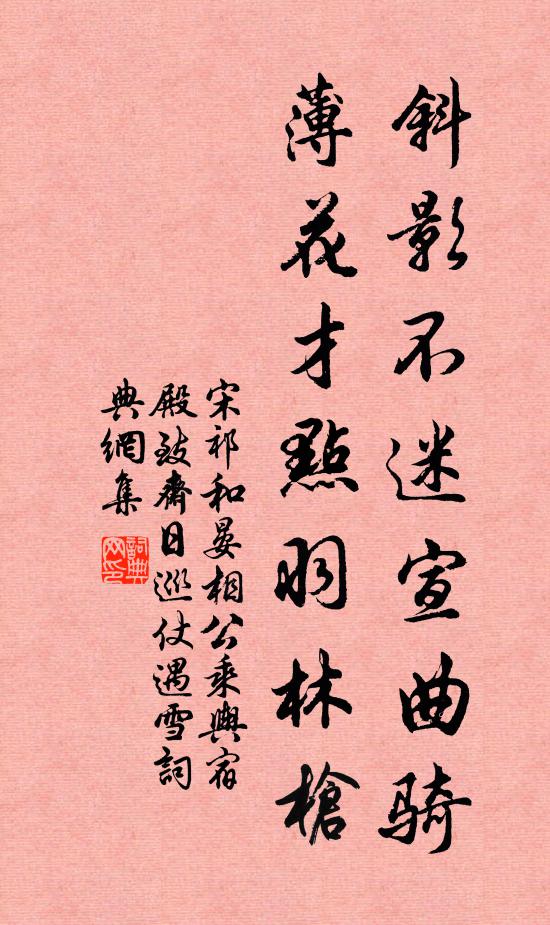 斜影不迷宣曲骑
薄花才點羽林槍
宋祁和晏相公乘輿宿
殿致齋日巡仗遇雪詞
典網集
詞典
网印